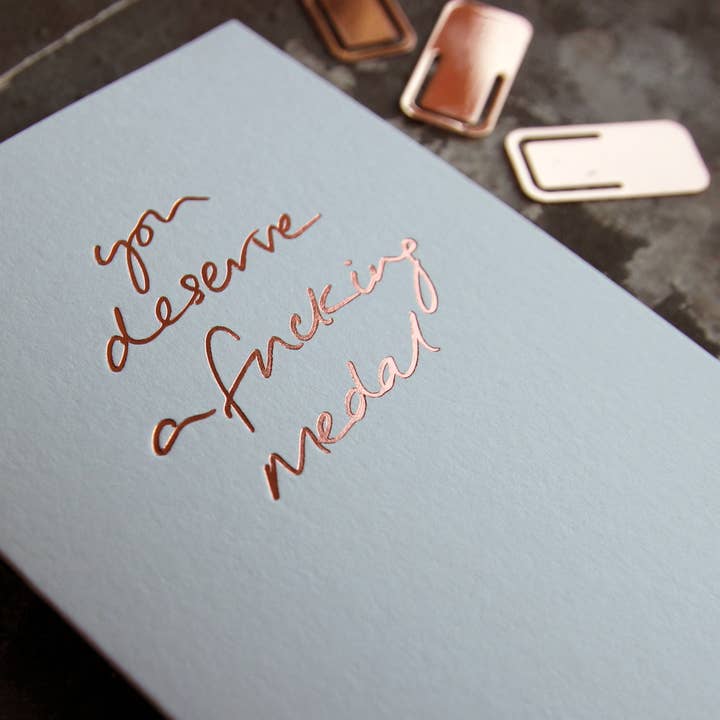 you
deserve
a fucking
medal